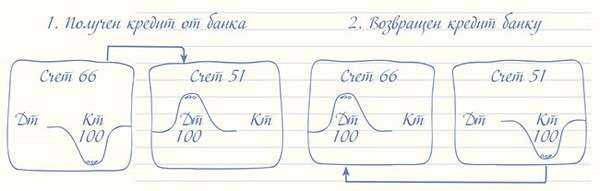 1. Получен кредит от банка
Счет 66
Дт Кт
100
Счет 51
Дт Кт
100
2. Возвращен кредит банку
Счет 66
Дт Кт
100
Счет 51
Дт Кт
100